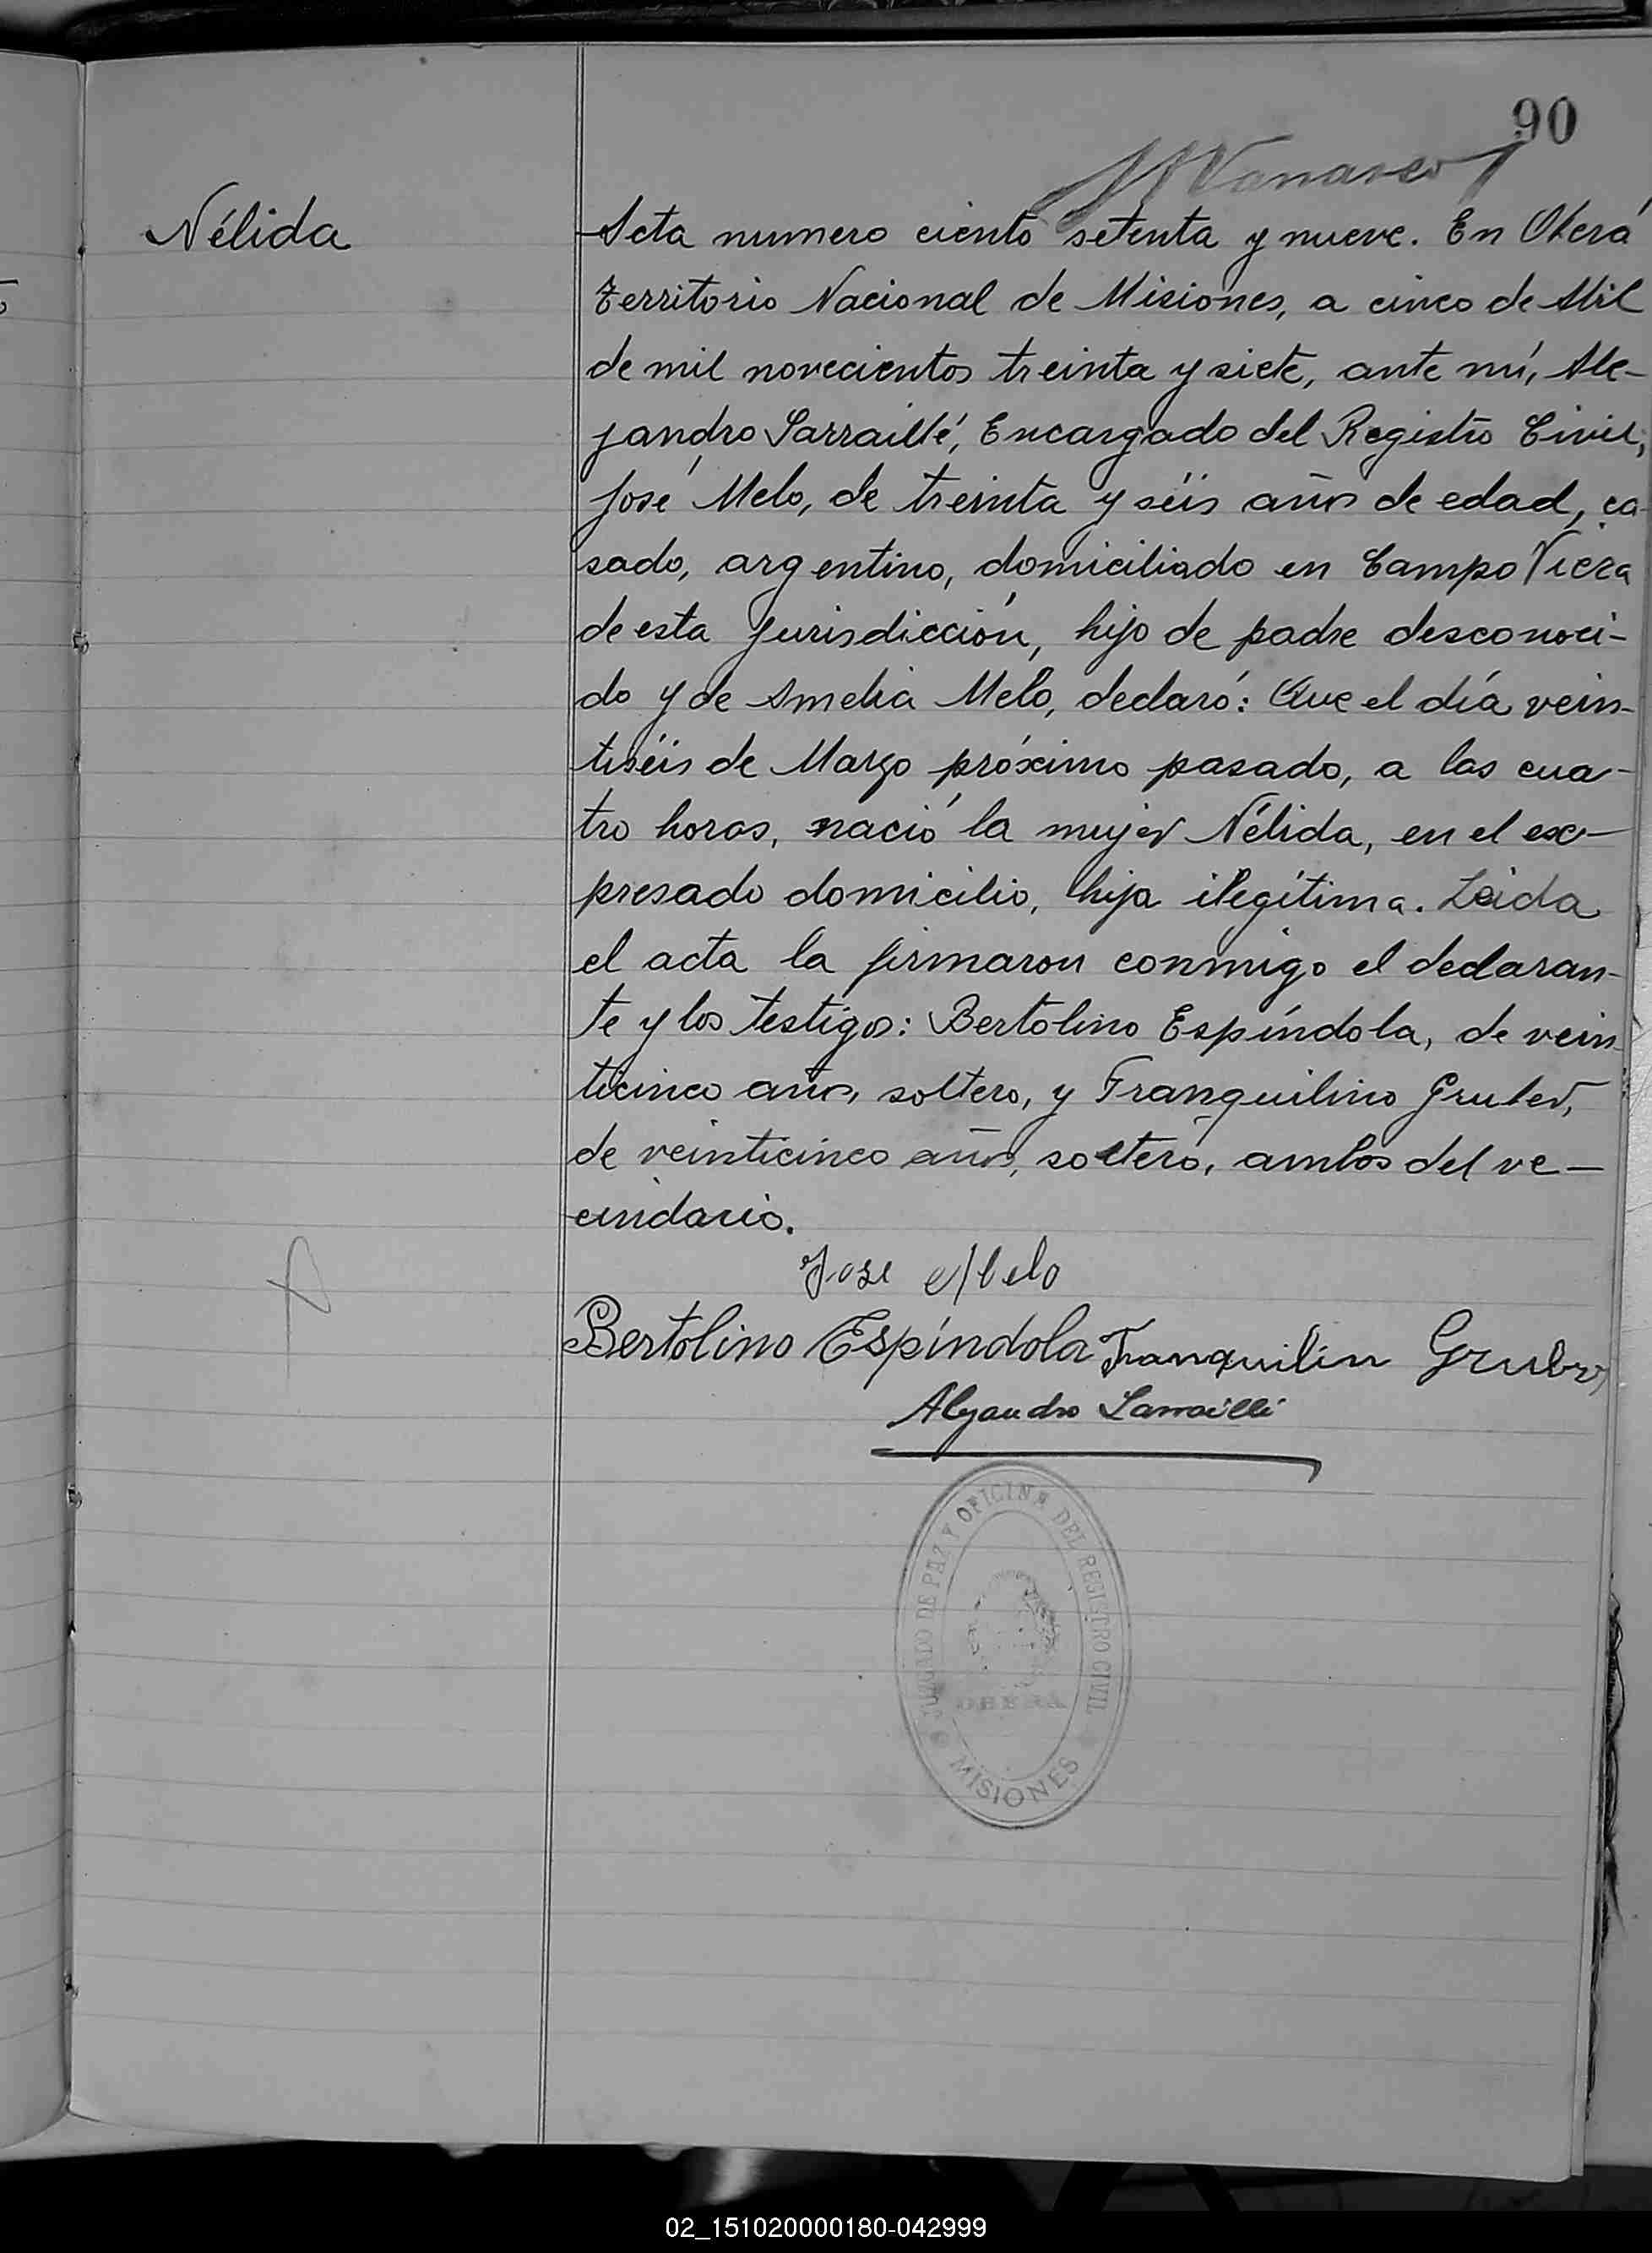 90
Nélida
Acta numero ciento setenta y nueve. En Oberá
Territorio Nacional de Misiones, a cinco de Abril
de mil novecientos treinta y siete, ante mí, Ale-
jandro Sarraillé, Encargado del Registro Civil,
José Melo, de treinta y séis años de edad, ca-
sado, argentino, domiciliado en Campo Viera
de esta jurisdicción, hijo de padre desconoci-
do y de Amelia Melo, declaró: Que el día vein-
tiséis de Marzo próximo pasado, a las cua-
tro horas, nació la mujer Nélida, en el ex-
presado domicilio, hija ilegítima. Leida
el acta la firmaron conmigo el declaran-
te y los testigos: Bertolino Espíndola, de vein-
ticinco años, soltero, y Tranquilino Gruber,
de veinticinco años, soltero, ambos del ve-
cindario.
Jose Melo
Bertolino Espíndola Tranquilin Gruber
Alejandro Sarraillé
JUZGADO DE PAZ Y OFICINA DEL REGISTRO CIVIL
OBERA
MISIONES
02_151020000180-042999